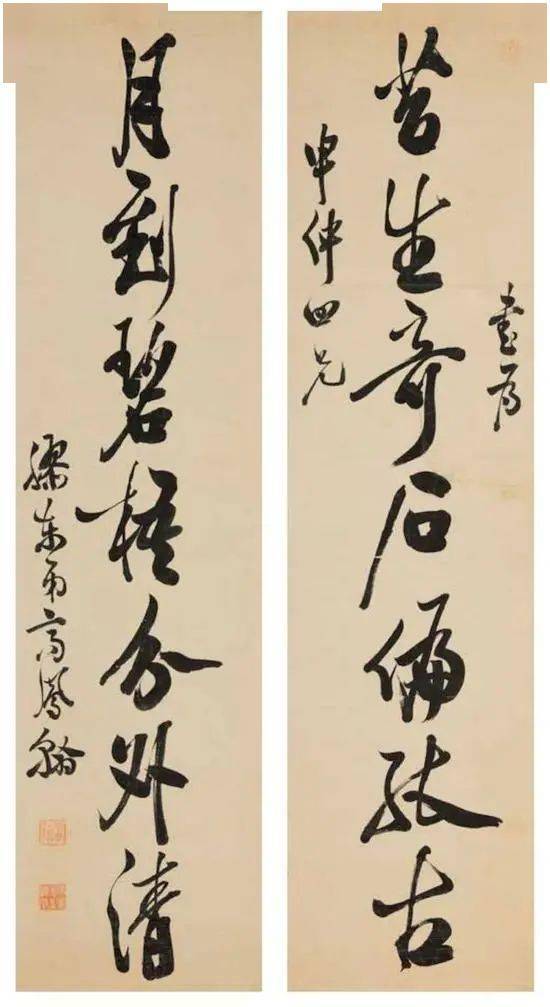 書為
苔生奇石偏能古
申仲四兄
月到碧梧分外清
膠東弟高鳳翰